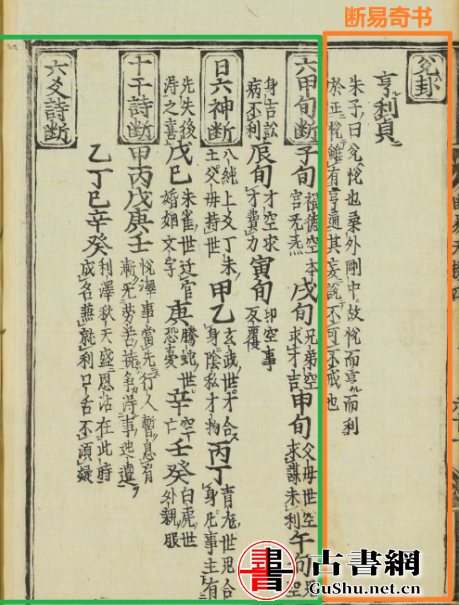 断易奇书
兌卦
亨利貞
朱子曰兌悅也柔外剛中故悅而亨而利
於正悅雖有亨通其妄說不可不戒也
六甲旬断
子旬
福德空本
宮无炁
戌旬
兄弟空
求才吉
甲旬
父母世空
求謀未利
午旬
身吉訟
病不利
辰旬
才空求
才費力
寅旬
空事
日六神断
八純上爻丁未
主父母持世
甲乙
玄武世才合
身陰私才物
丙丁
青龙世
身凡事主有
先失後
得之喜
戊巳
朱雀世迁官
婚姻文字
庚
騰蛇世
恐憂
辛
空
壬癸
白虎世
外親服
十干詩断
甲丙戊庚壬
悅澤事當先行人暫息肩
漸无勞苦得事迍邅
乙丁巳辛癸
利澤秋天盛恩沾在此時
成名無就利口舌不須疑
六爻詩断
書
古書網
GuShu.net.cn